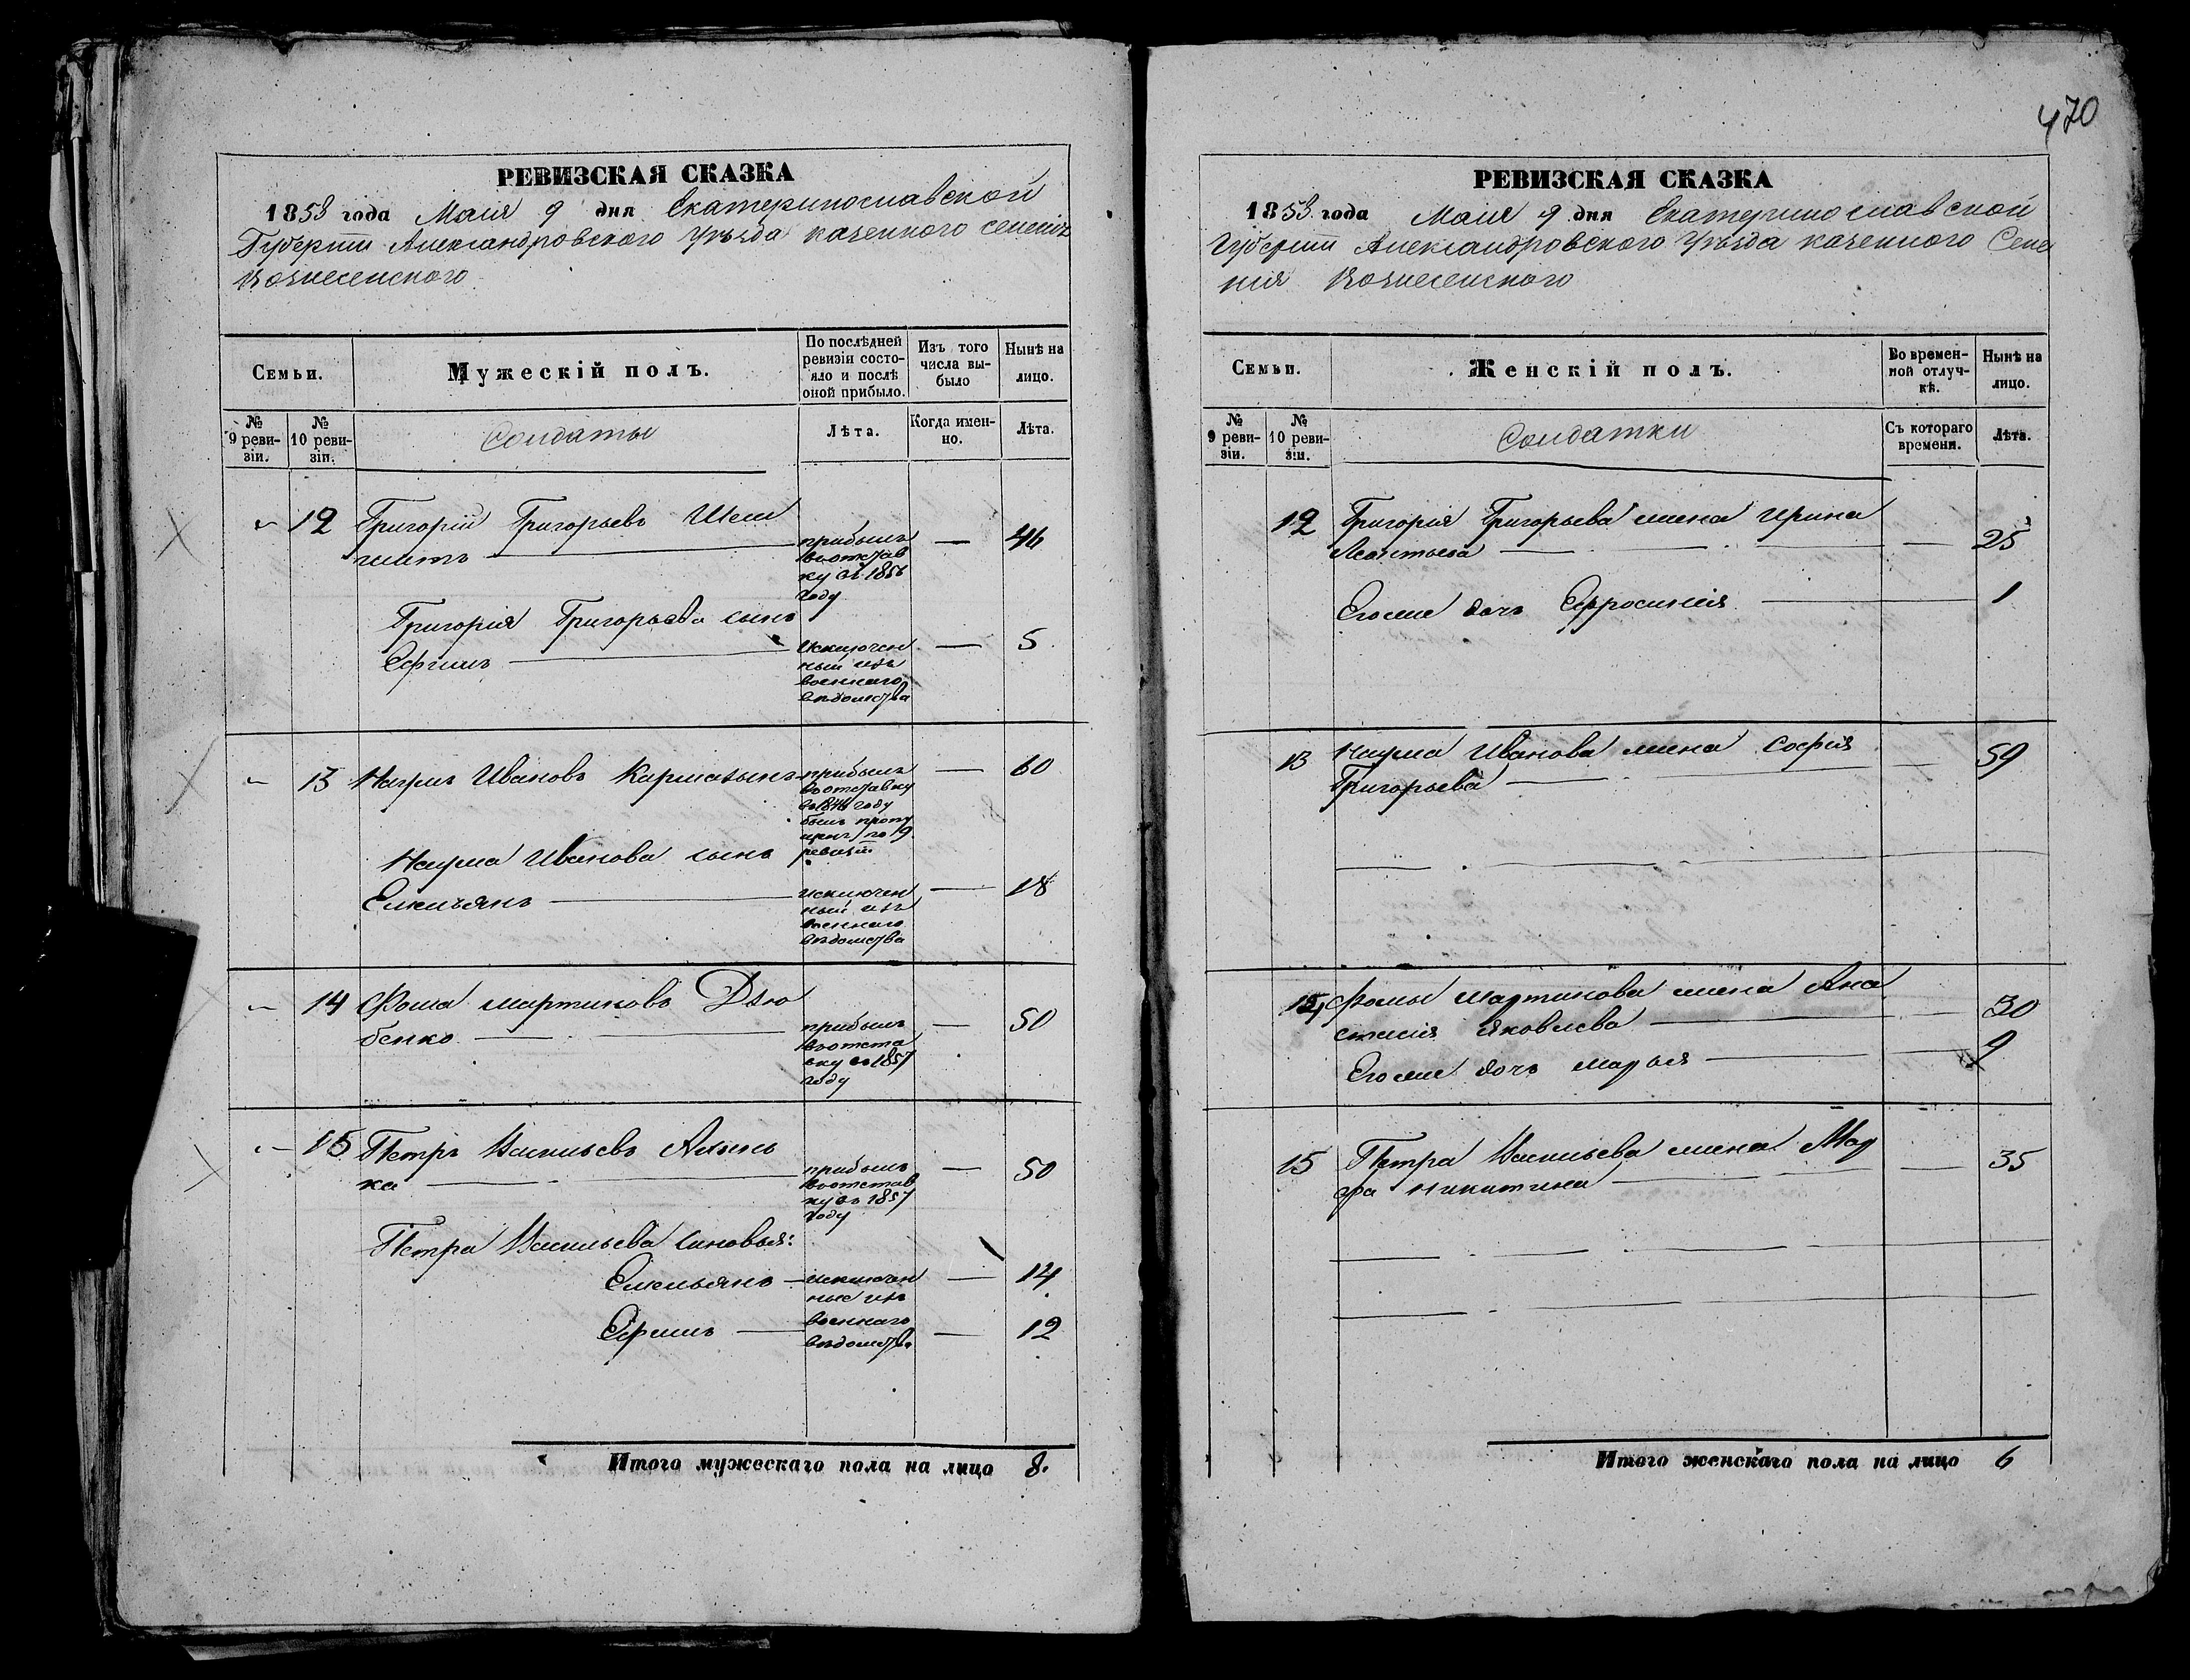 470
РЕВИЗСКАЯ СКАЗКА
1858 года Маія 9 дня Екатеринославской
Губерніи Александровского Уѣзда казенного селенія
Вознесенского
Семьи.
Мужескій полъ.
По послѣдней
ревизіи состо-
яло и послѣ
оной прибыло.
Изъ того
числа вы-
было
Нынѣ на
лицо.
№
9 реви-
зіи.
№
10 реви-
зіи.
Солдаты
Лѣта.
Когда имен-
но.
Лѣта.
12 Григорій Григорьевъ
прибылъ
въ отстав
ку въ 1856
году
— 46
Григорія Григорьева сынъ
Ефимъ
исключен
ный изъ
военнаго
вѣдомства
— 5
13 Наумъ Ивановъ
прибылъ
въ отставку
году
былъ пропу
щенъ по 9
ревизіи
— 60
Наума Иванова сынъ
Емельянъ
исключен
ный изъ
военнаго
вѣдомства
— 18
14 Фома Мартиновъ Дзю
бенко
прибылъ
въ отста
вку въ 1857
году
— 50
15 Петръ Васильевъ
ка
прибылъ
въ отстав
ку въ 1857
году
— 50
Петра Васильева синовья:
Емельянъ — исключен
ные изъ
— 14
Ефимъ — военнаго
вѣдомства
— 12
Итого мужескаго пола на лицо 8.
РЕВИЗСКАЯ СКАЗКА
1858 года Маія 9 дня Екатеринославской
Губерніи Александровского Уѣзда казенного Селе
нія Вознесенского
Семьи.
Женскій полъ.
Во времен-
ной отлуч-
кѣ.
Нынѣ на
лицо.
№
9 реви-
зіи.
№
10 реви-
зіи.
Солдатки
Съ котораго
времени.
Лѣта.
12 Григорія Григорьева жена Ирина
Леонтьева — 25
Егоже дочь Ефросинія — 1
13 Наума Иванова жена Софія
Григорьева — 59
Фомы Мартинова жена Ана
стасія Яковлева — 30
Егоже дочь Марья — 9
15 Петра Васильева жена Мар
фа Никитина — 35
Итого женскаго пола на лицо 6